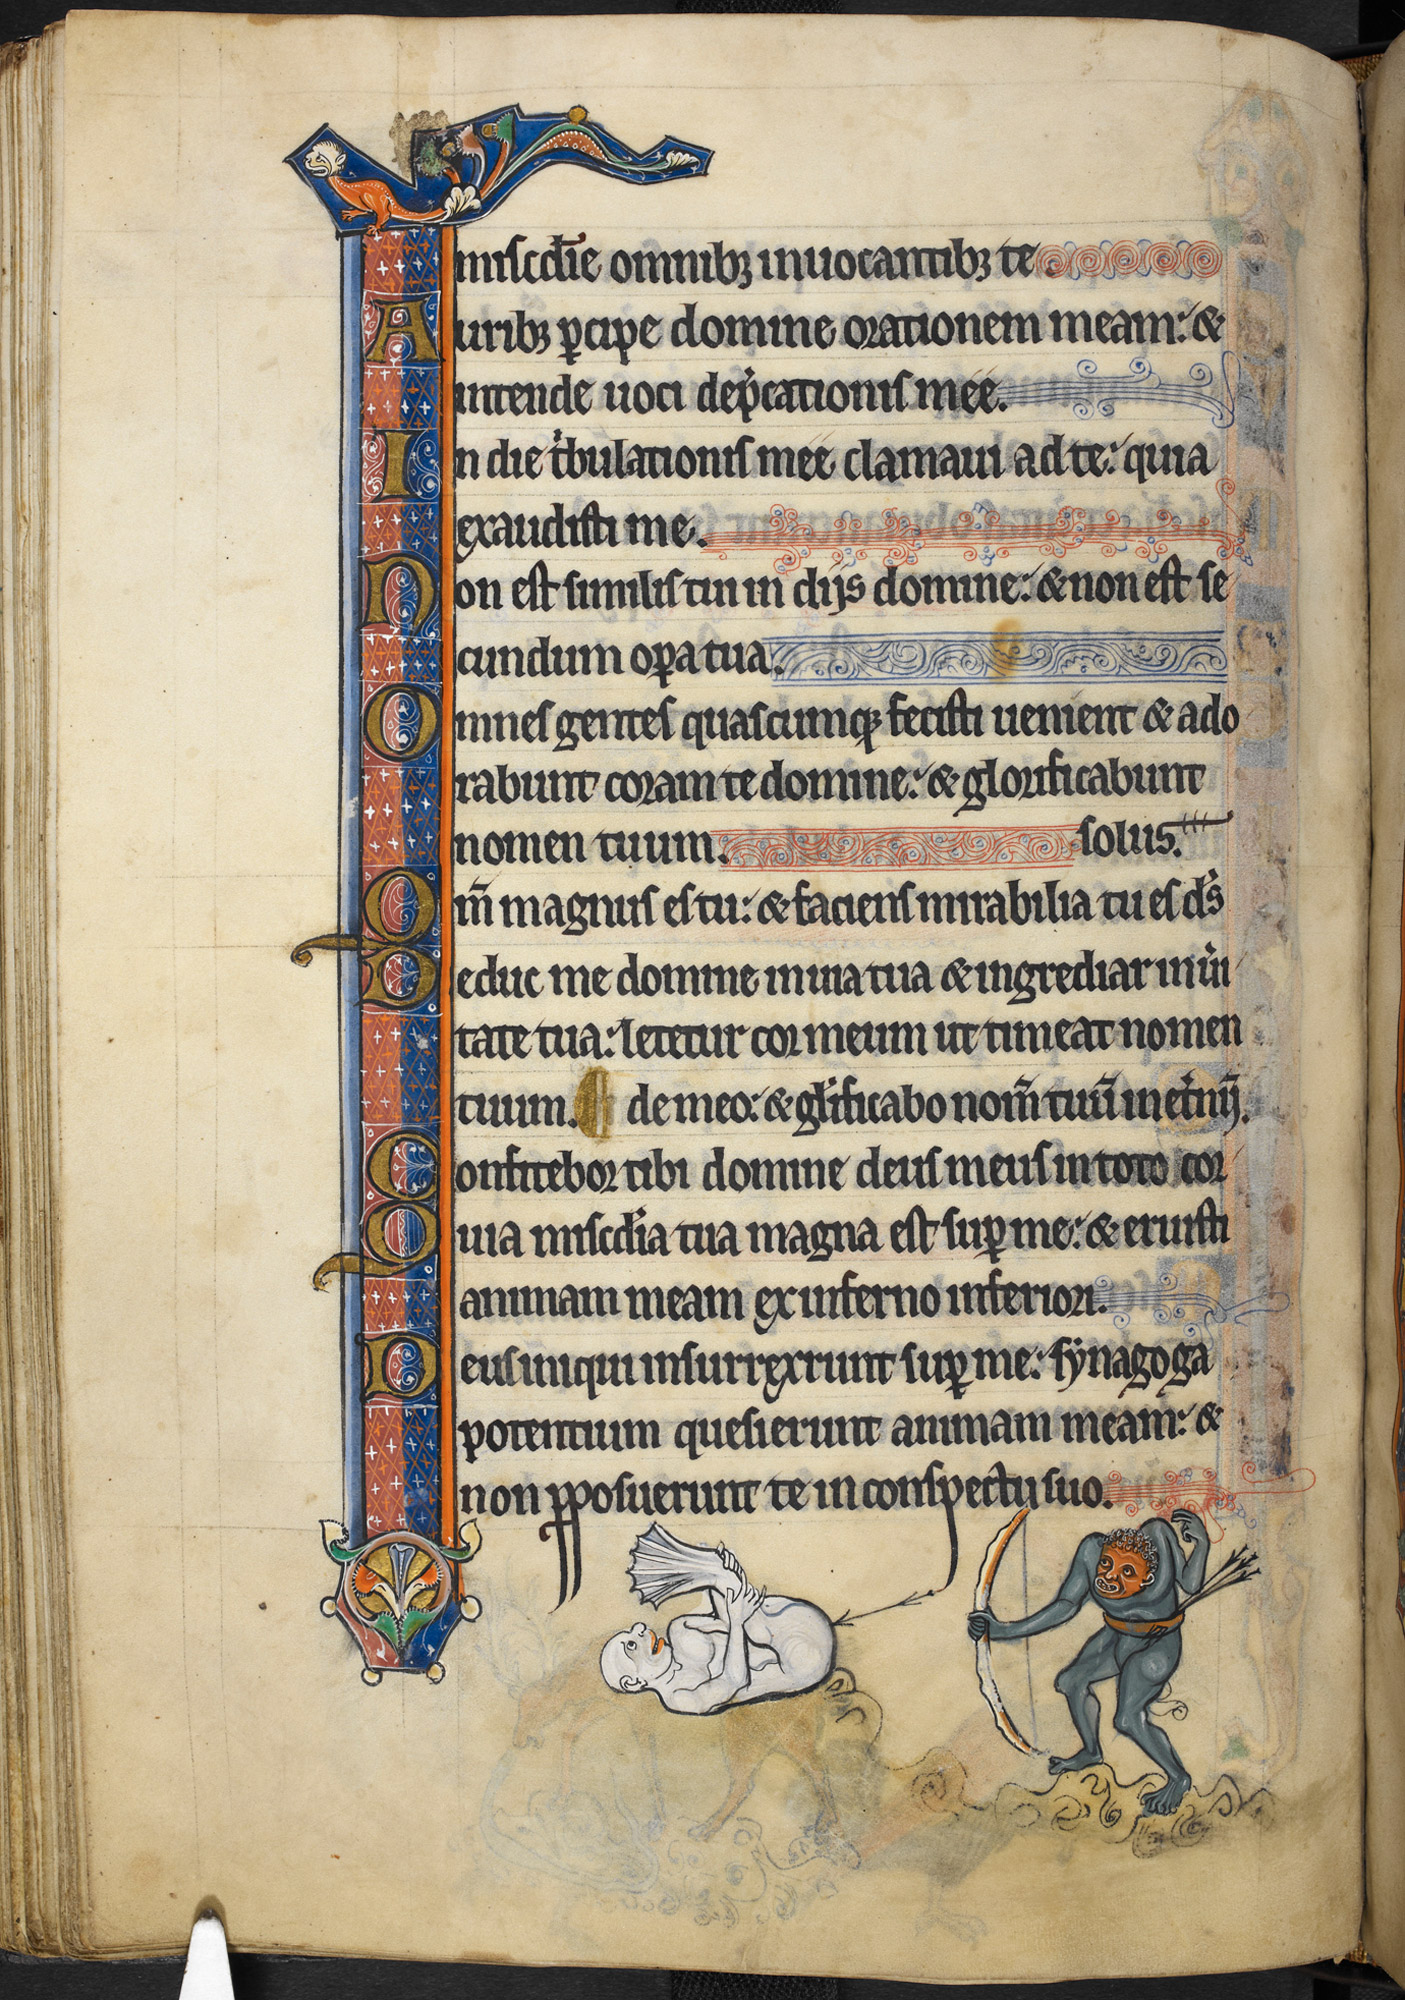 misc̄die omnibꝫ inuocantibꝫ te.
Auribꝫ ꝑcipe domine orationem meam: &
intende uoci dep̾cationis mee.
In die t̾bulationis mee clamaui ad te: quia
exaudisti me.
Non est similis tui in dijs domine: & non est se
cundum oꝑa tua.
Omnes gentes quascumqꝫ fecisti uenient & ado
rabunt coram te domine: & glorificabunt
nomen tuum. solus.
Qm̄ magnus es tu: & faciens mirabilia tu es ds̾
Deduc me domine in uia tua & ingrediar in ui̾
tate tua: letetur cor meum ut timeat nomen
tuum. de meo: & gl̾ificabo nom̄ tuū in et̾nū.
Confitebor tibi domine deus meus in toto cor
Quia miscd̾ia tua magna est suꝑ me: & eruisti
animam meam ex inferno inferiori.
Deus iniqui insurrexrunt suꝑ me: synagoga
potentium quesierunt animam meam: &
non ꝓposuerunt te in conspectu suo.